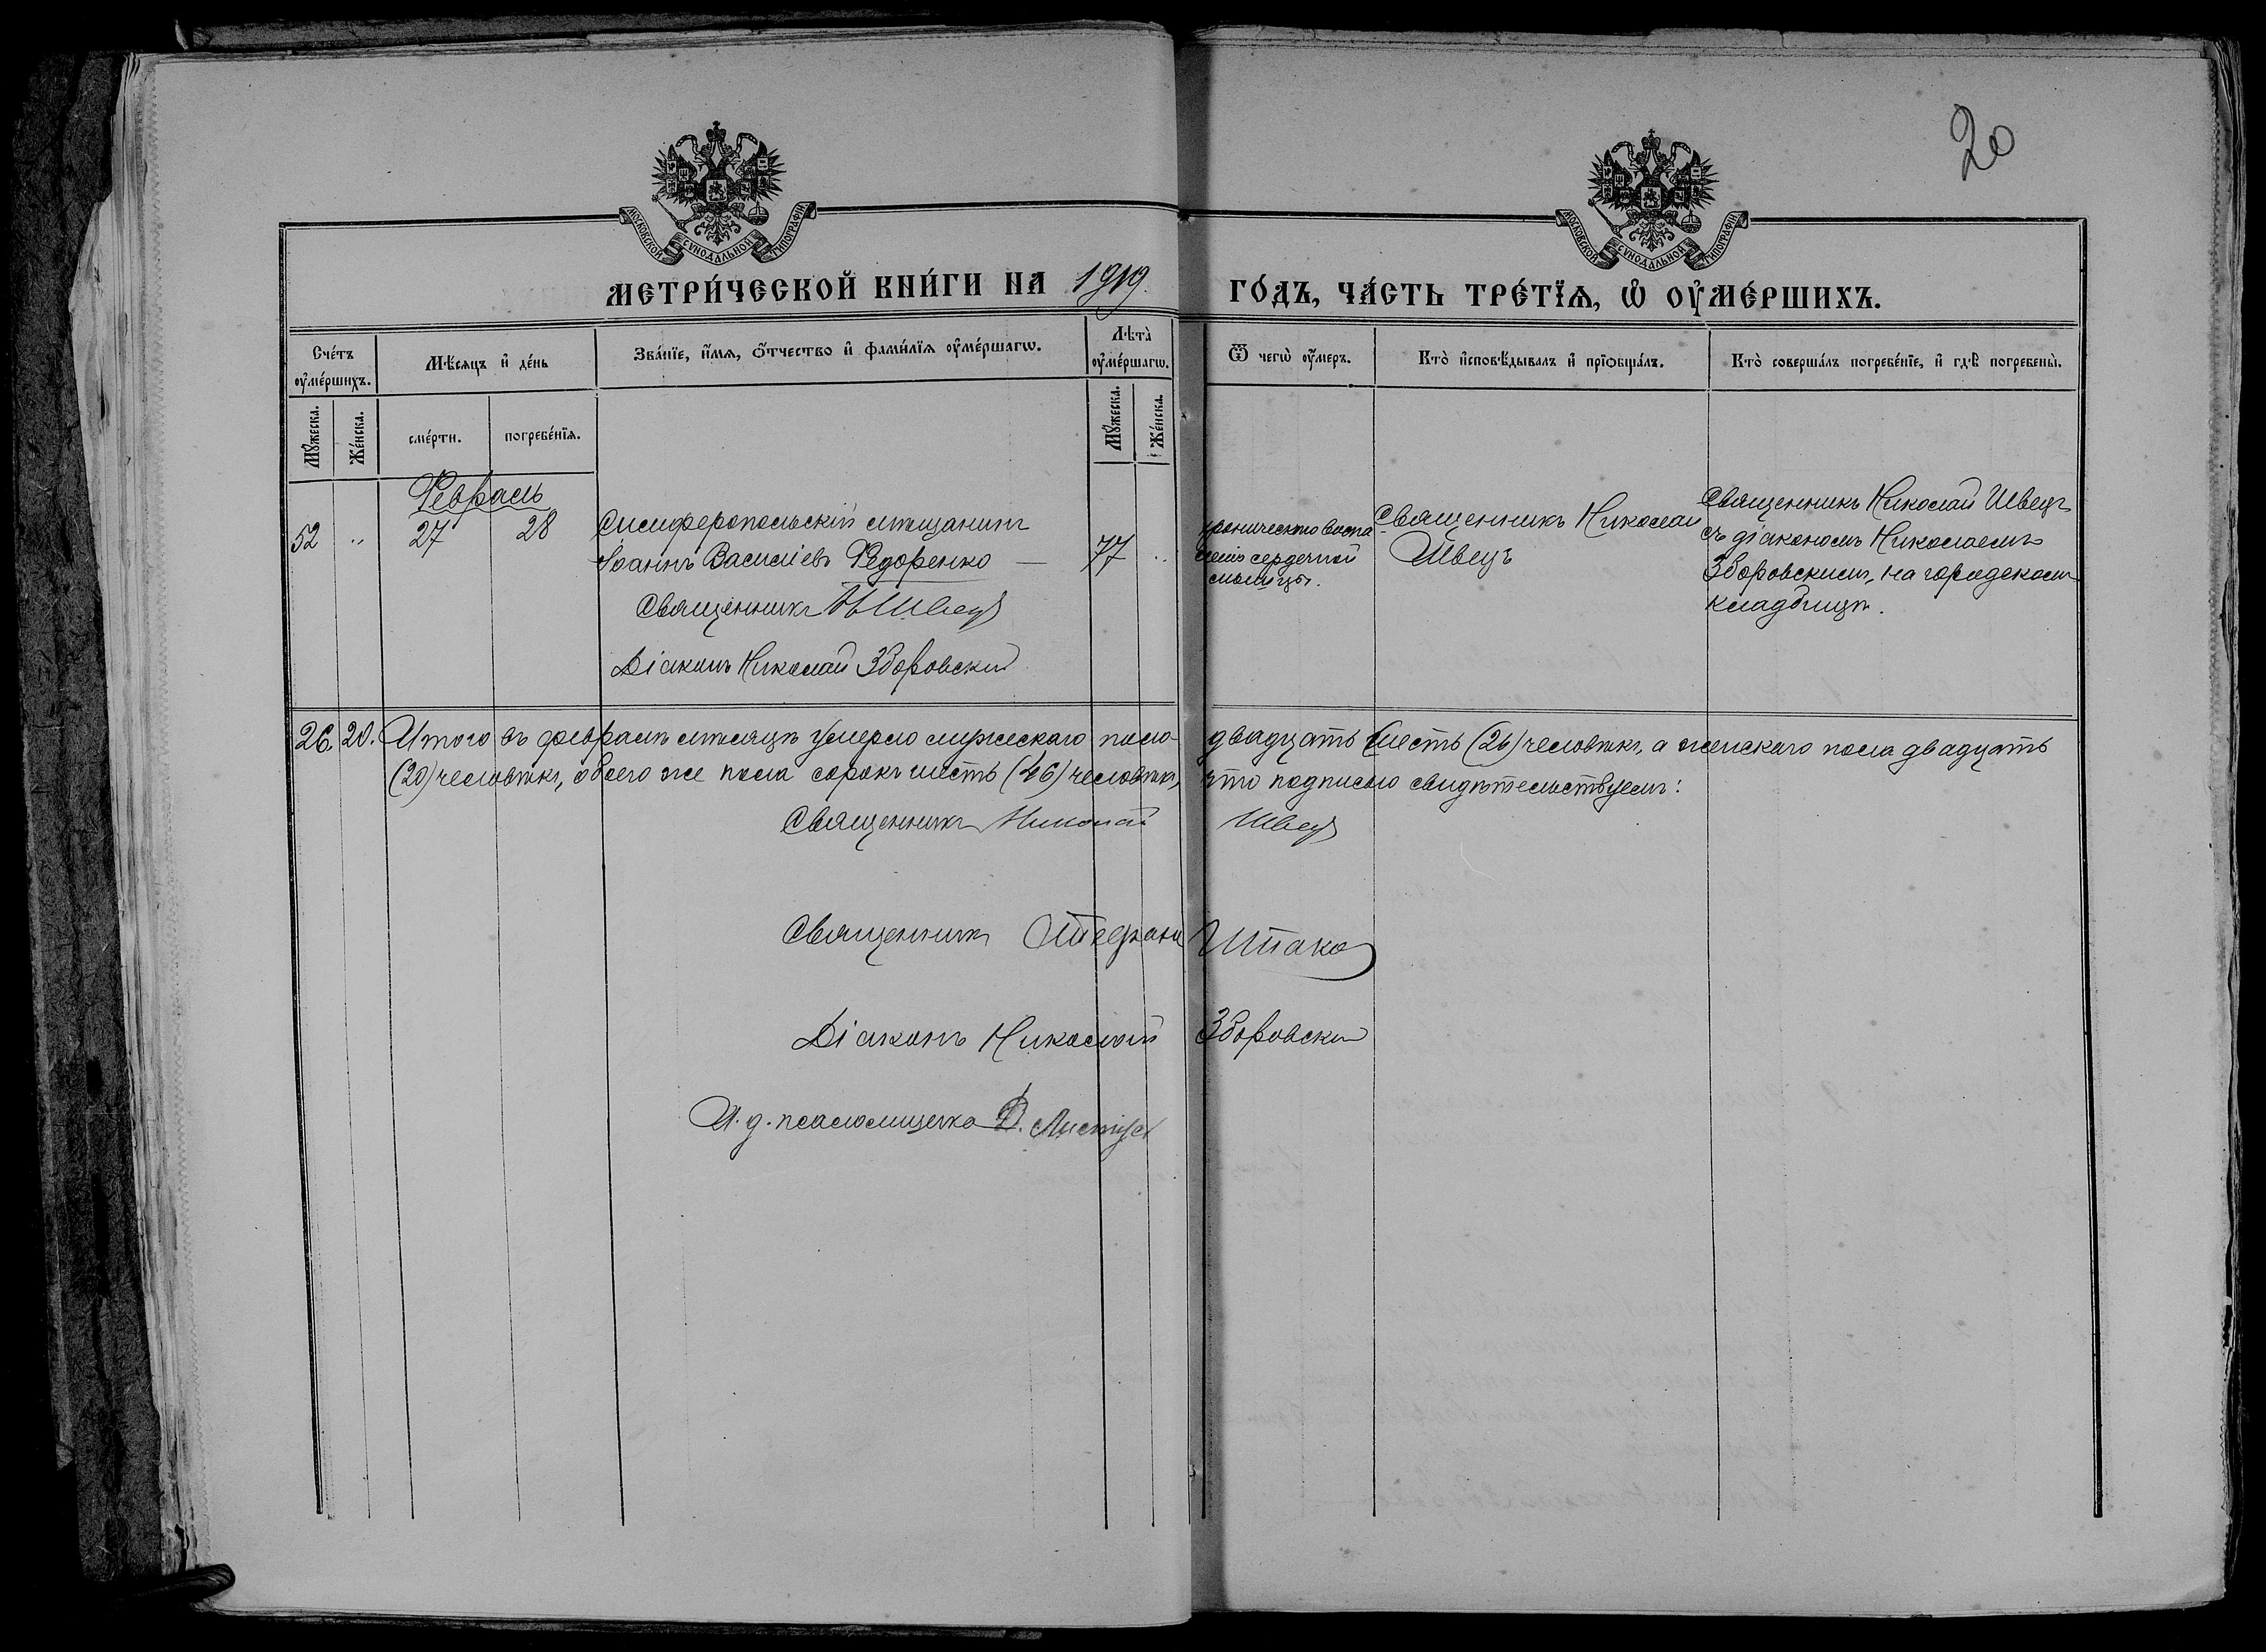 20
МОСКОВСКОЙ СУНОДАЛЬНОЙ ТИПОГРАФІИ
МОСКОВСКОЙ СУНОДАЛЬНОЙ ТИПОГРАФІИ
МЕТРИ́ЧЕСКОЙ КНИ́ГИ НА 1919 ГО́ДЪ, ЧА́СТЬ ТРЕ́ТЇѦ, Ѡ҆ ОУ҆МЕ́РШИХЪ.
Сче́тъ оу҆ме́ршихъ.
Мѣ́сѧцъ и҆ де́нь
Зва́нїе, и҆́мѧ, ѻ҆́тчество и҆ фами́лїѧ оу҆ме́ршагѡ.
Лѣ́та оу҆ме́ршагѡ.
Ѿ чегѡ̀ оу҆́меръ.
Кто̀ и҆сповѣ́дывалъ и҆ прїѡбща́лъ.
Кто̀ соверша́лъ погребе́нїе, и҆ гдѣ̀ погребены̀.
Мꙋ́жеска.
Же́нска.
сме́рти.
погребе́нїѧ.
Мꙋ́жеска.
Же́нска.
Февраль
52 " 27 28 Симферопольскій мѣщанинъ
Іоаннъ Василіевъ Федоренко — 77 "
Священникъ Н Швецъ
Діаконъ Николай Зборовскій
хроническаго воспа
ленія сердечной
мышцы.
Священникъ Николай
Швецъ
Священникъ Николай Швецъ
съ діакономъ Николаемъ
Зборовскимъ, на городскомъ
кладбищѣ.
26. 20. Итого въ февралѣ мѣсяцѣ умерло мужескаго пола двадцать шесть (26) человѣкъ, а женскаго пола двадцать
(20) человѣкъ, обоего же пола сорокъ шесть (46) человѣкъ, что подписью свидѣтельствуемъ:
Священникъ Николай Швецъ
Священникъ Стефанъ
Діаконъ Николай Зборовскій
И. д. псаломщика